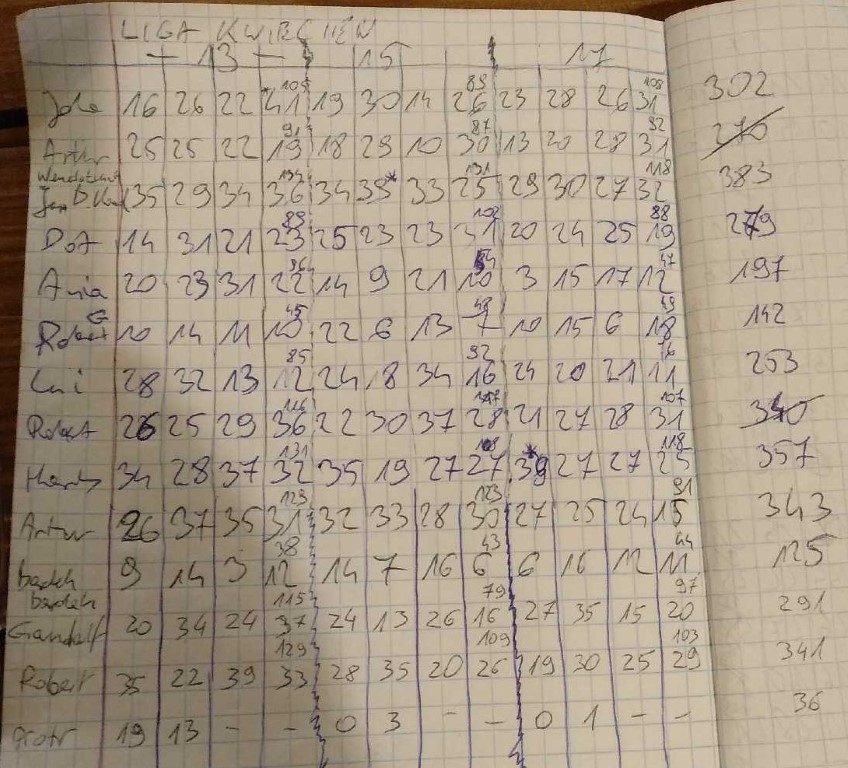 LIGA KWIECIEŃ
13 15 17
Jola 16 26 22 41 105 19 30 14 26 89 23 28 26 31 108 302
Artur 25 25 22 19 91 18 29 10 30 87 13 20 28 31 92 270
35 29 34 36 134 34 39* 33 25 131 29 30 27 32 118 383
DoA 14 31 21 23 89 25 23 23 31 102 20 24 25 19 88 279
Ania 20 23 31 22 96 14 9 21 10 54 3 15 17 12 47 197
Robert G 10 14 11 10 45 22 6 13 7 48 10 15 6 18 49 142
Lui 28 32 13 12 85 24 18 34 16 92 24 20 21 11 76 253
Robert 26 25 29 36 116 22 30 37 28 117 21 27 28 31 107 340
34 28 37 32 131 35 19 27 27 108 39* 27 27 25 118 357
Artur 26 37 35 31 123 32 33 28 30 123 27 25 24 15 91 343
9 14 3 12 38 14 7 16 6 43 6 16 12 11 44 125
Gandalf 20 34 24 37 115 24 13 26 16 79 27 35 15 20 97 291
Robert 35 22 39 33 129 28 35 20 26 109 19 30 25 29 103 341
Piotr 19 13 - - 0 3 - - 0 1 - - 36